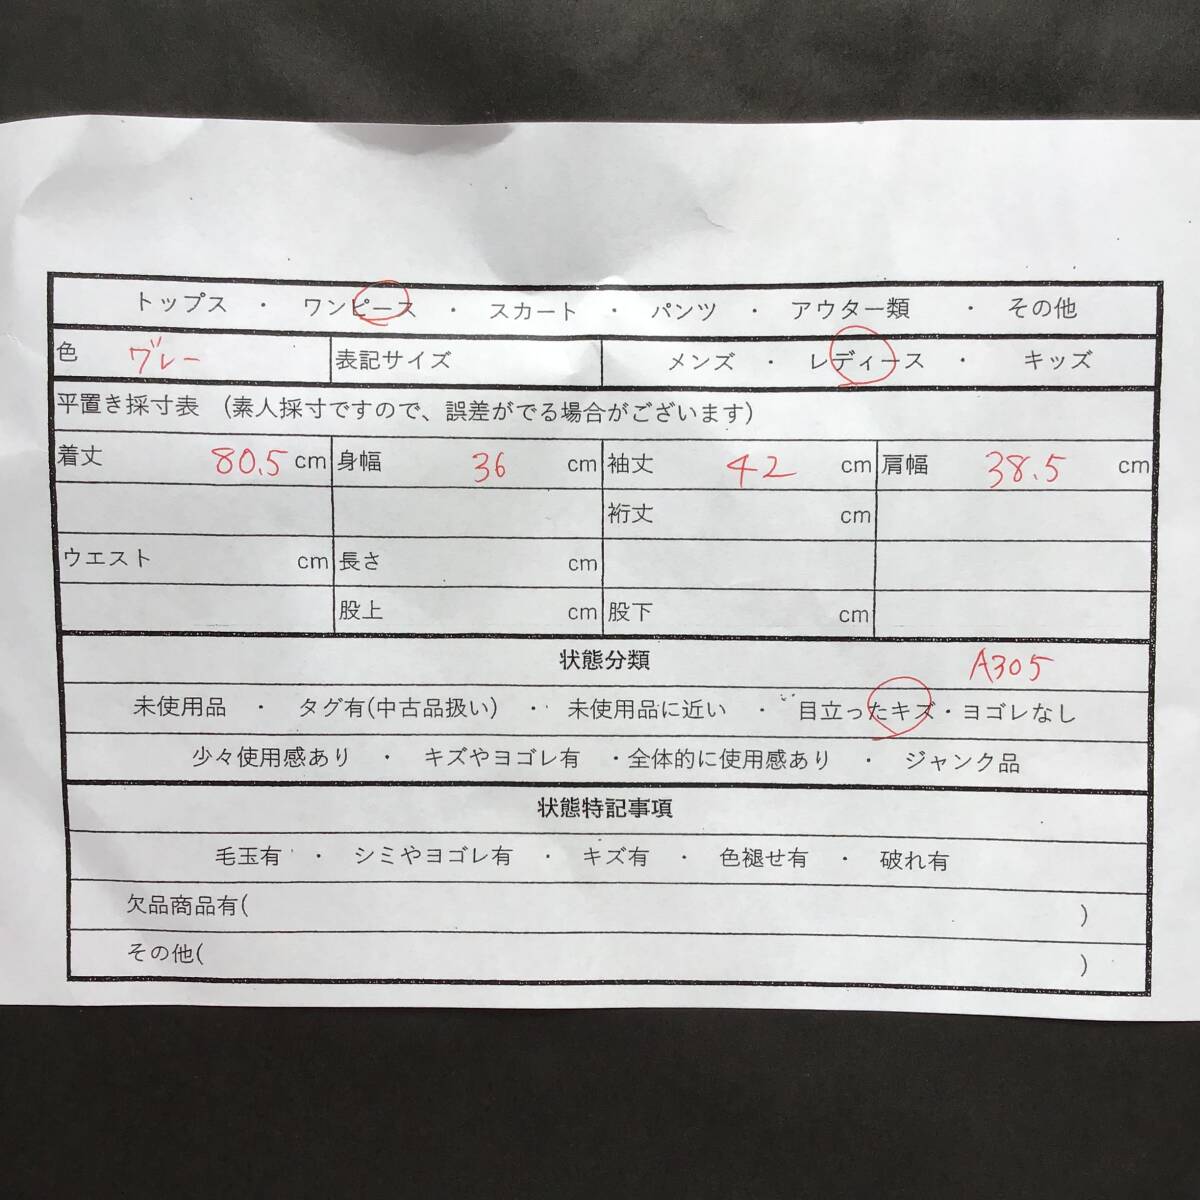 トップス ・ ワンピース ・ スカート ・ パンツ ・ アウター類 ・ その他
色 グレー 表記サイズ メンズ ・ レディース ・ キッズ
平置き採寸表 (素人採寸ですので、誤差がでる場合がございます)
着丈 80.5 cm 身幅 36 cm 袖丈 42 cm 肩幅 38.5 cm
裄丈 cm
ウエスト cm 長さ cm
股上 cm 股下 cm
状態分類 A305
未使用品 ・ タグ有(中古品扱い) ・ 未使用品に近い ・ 目立ったキズ・ヨゴレなし
少々使用感あり ・ キズやヨゴレ有 ・全体的に使用感あり ・ ジャンク品
状態特記事項
毛玉有 ・ シミやヨゴレ有 ・ キズ有 ・ 色褪せ有 ・ 破れ有
欠品商品有( )
その他( )